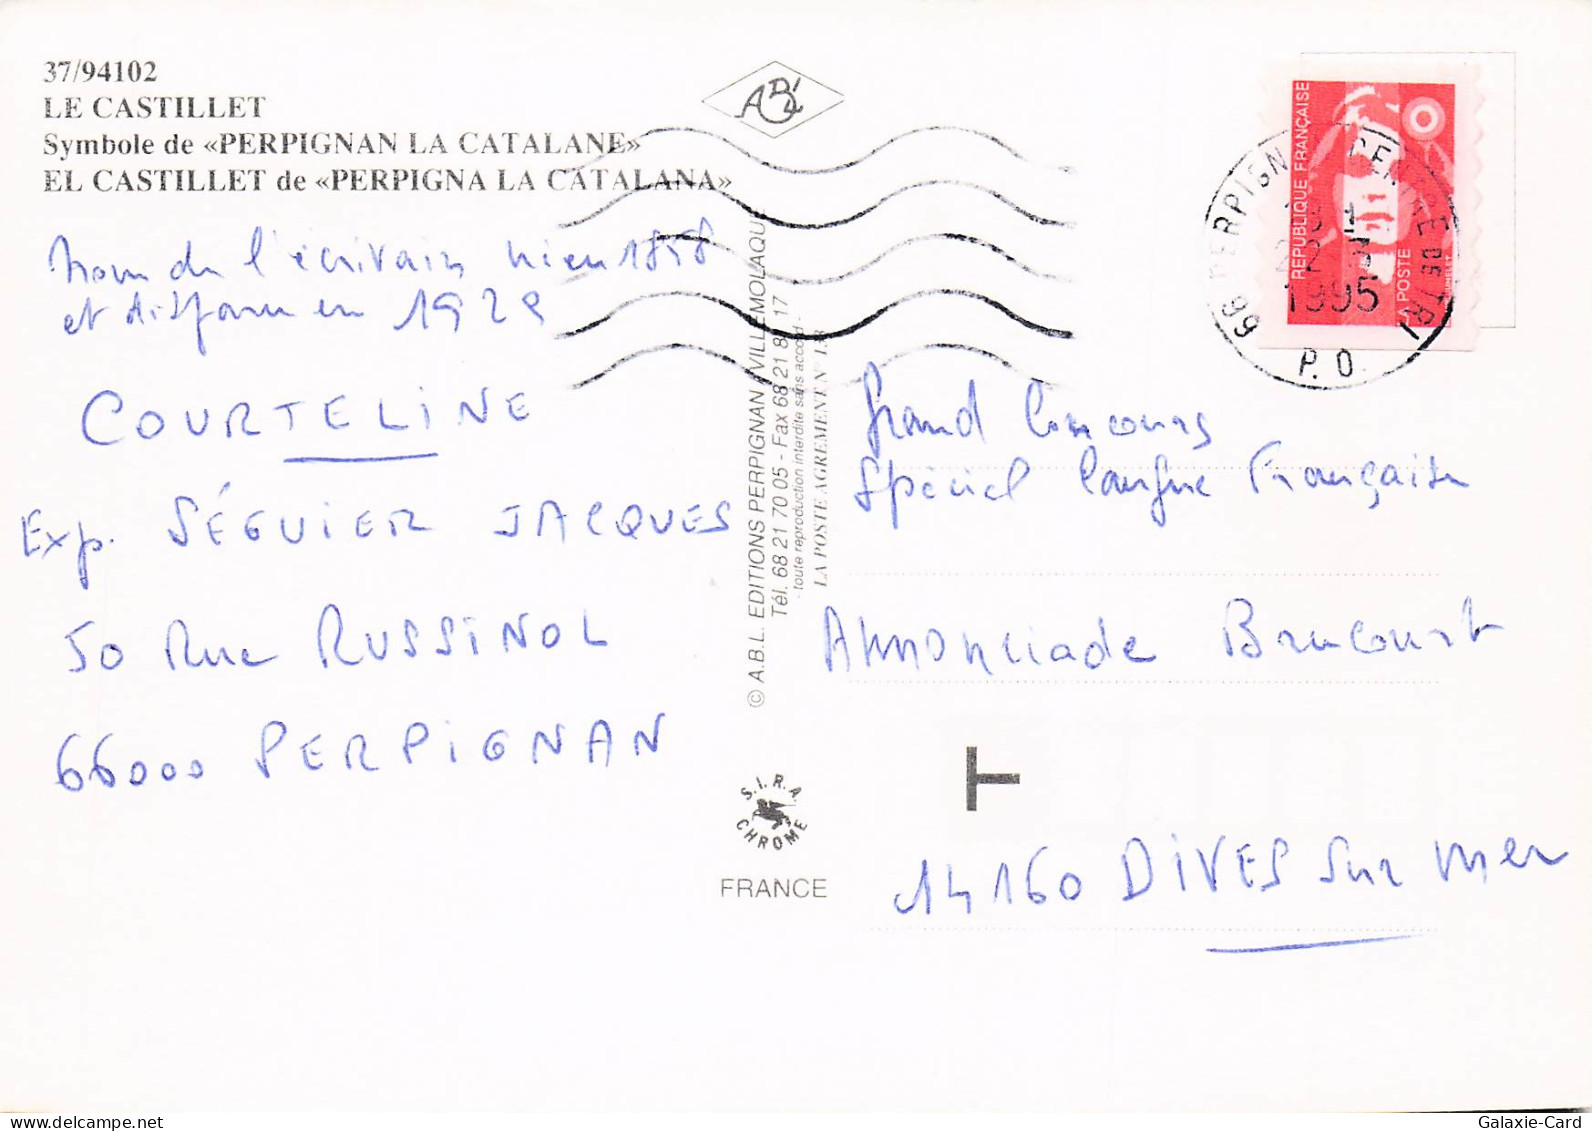 37/94102
LE CASTILLET
Symbole de «PERPIGNAN LA CATALANE»
EL CASTILLET de «PERPIGNA LA CATALANA»
Nom de l'écrivain né en 1858
et disparu en 1929
COURTELINE
Exp. SÉGUIER JACQUES
50 Rue RUSSINOL
66000 PERPIGNAN
ABL
© A.B.L. EDITIONS PERPIGNAN VILLEMOLAQUE
Tél. 68 21 70 05 - Fax 68 21 8 17
- toute reproduction interdite sans accord -
LA POSTE AGREMENT N°
S.I.R.A.
CHROME
FRANCE
REPUBLIQUE FRANÇAISE
LA POSTE
66 PERPIGNAN CENTRE DE TRI
22 - 3
1995
P.O.
Grand Concours
Spécial langue Française
Annonciade Brucourt
T
14160 DIVES sur Mer
Galaxie-Card